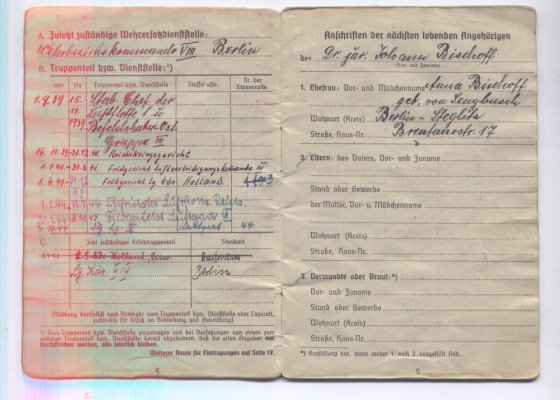 A. Zuletzt zuständige Wehrersatzdienststelle:
Wehrbezirkskommando VIII Berlin
B. Truppenteil bzw. Dienststelle:¹)
von bis Truppenteil bzw. Dienststelle Staffel usw. Nr. der Stammrolle
1.9.39 15. Stab Chef der
11. Luftflotte 1 u
1939 Befehlshaber Ost
Gruppe III
16. 11. 39-31.12. 40 Reichskriegsgericht
1.1.41-31.3.41 Feldgericht Luftverteidigungskommando III
1.4.41- Feldgericht Lg Kdo Holland 3
1.1.44
44
C. Jetzt zuständiger Ersatztruppenteil Standort
Holland Amsterdam
Berlin
(Meldung dortselbst nach Rückkehr vom Truppenteil bzw. Dienststelle oder Lazarett,
zuständig für Ersatz an Bekleidung und Ausrüstung)
¹) Vom Truppenteil bzw. Dienststelle einzutragen und bei Versetzungen von einem zum
anderen Truppenteil bzw. Dienststelle derart abzuändern, daß die alten Angaben nur
durchstrichen werden, also leserlich bleiben.
Weiterer Raum für Eintragungen auf Seite 17.
4
Anschriften der nächsten lebenden Angehörigen
des Dr. jur. Johann Bischoff
(Vor- und Zuname)
1. Ehefrau: Vor- und Mädchenname Anna Bischoff
geb. von Lengbusch
Wohnort (Kreis) Berlin-Steglitz
Straße, Haus-Nr. Brentanostr. 17
2. Eltern: des Vaters, Vor- und Zuname
Stand oder Gewerbe
der Mutter, Vor- u. Mädchenname
Wohnort (Kreis)
Straße, Haus-Nr.
3. Verwandte oder Braut:*)
Vor- und Zuname
Stand oder Gewerbe
Wohnort (Kreis)
Straße, Haus-Nr.
*) Ausfüllung nur, wenn weder 1. noch 2. ausgefüllt sind.
5